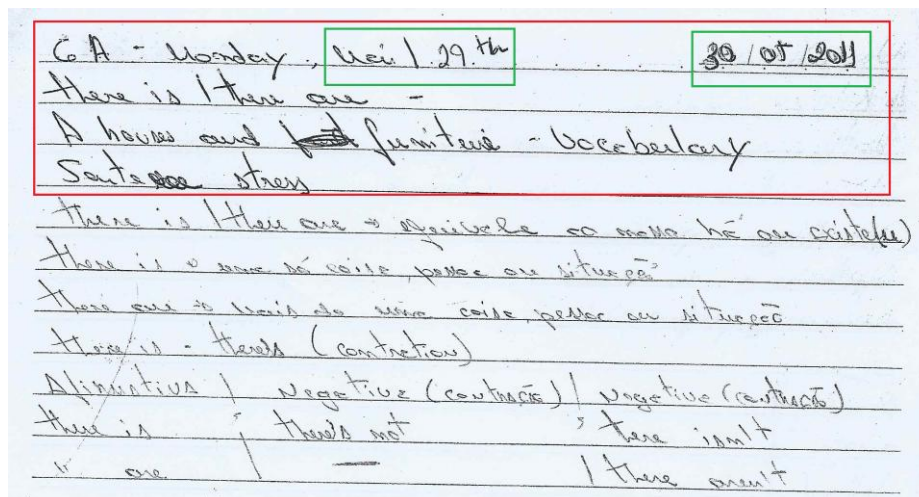 6A - Monday, Mai / 29th 30/05/2011
there is / there are -
A houses and funiture - Vocabulary
Sentence stress
there is / there are → equivale ao nosso há ou existe(m)
there is → uma só coisa, pessoa ou situação
there are → mais de uma coisa, pessoa ou situação
there is - there's (contration)
Afirmative / negative (contração) / negative (contração)
there is / there's not / there isn't
" are / — / there aren't